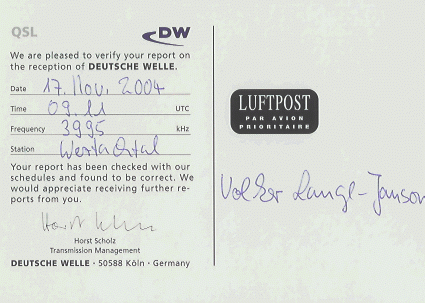 QSL
DW
We are pleased to verify your report on
the reception of DEUTSCHE WELLE.
Date 17. Nov. 2004
Time 09.11 UTC
Frequency 3995 kHz
Station Wertachtal
Your report has been checked with our
schedules and found to be correct. We
would appreciate receiving further re-
ports from you.
Horst Scholz
Transmission Management
DEUTSCHE WELLE · 50588 Köln · Germany
LUFTPOST
PAR AVION
PRIORITAIRE
Volker Lange-Janson